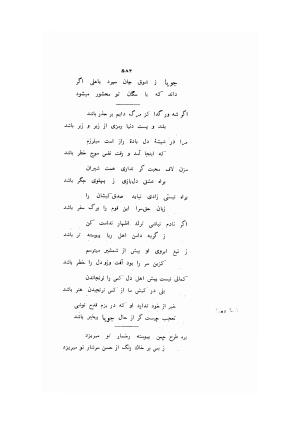 ۵۸۲
جویا ز شوق جان سپرد باعلی اگر
داند که با سگان تو محشور میشود
اگر شه ور گدا کز مرگ دایم پر حذر باشد
بلند و پست دنیا ورهی از زیر و زبر باشد
مرا در شیشهٔ دل بادهٔ راز است میلرزم
که اینجا آمد و رفت نفس موج خطر باشد
مزن لاف محبت گر نداری همت شیران
براه عشق دل‌بازی ز پهلوی جگر باشد
براه نیستی زادی نباید صدق‌کیشان را
زبان حق‌سرا این قوم را برگ سفر باشد
اگر نادم نباشی ترک اظهار ندامت کن
ز گریه دامن اهل ریا پیوسته تر باشد
ز تیغ ابروی او بیش از شمشیر میترسم
کزین سر را بود آفت وزو دل را خطر باشد
کمالی نیست پیش اهل دل کس را ترنجاندن
ولی در کیش ما از کس نرنجیدن هنر باشد
خبر از خود ندارد او که در بزم قدح نوشی
تعجب چیست گر از حال جویا بیخبر باشد
بره طرح چمن پیوسته رخسار تو میریزد
ز بس بر خاک رنگ از حسن سرشار تو میریزد